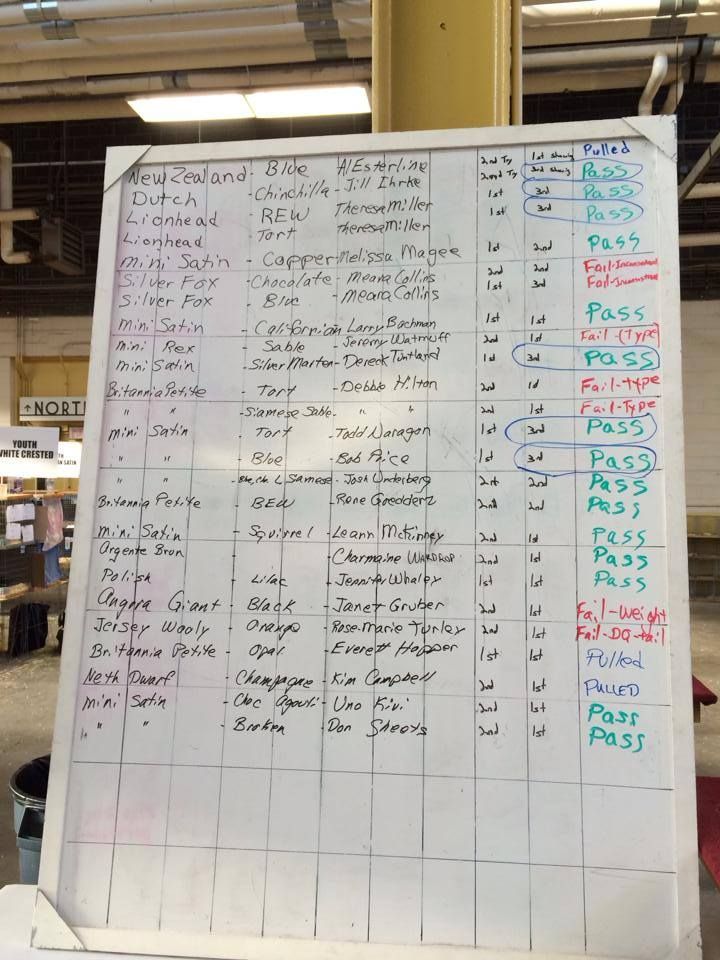 New Zealand - Blue Al Esterline 2nd Try 1st Showing Pulled
Dutch - Chinchilla - Jill Ihrke 2nd Try 3rd Showing Pass
Lionhead - REW Theresa Miller 1st 3rd Pass
Lionhead Tort Theresa Miller 1st 3rd Pass
mini Satin - Copper - Melissa Magee 1st 2nd Pass
Silver Fox - Chocolate - Meara Collins 2nd 2nd Fail-
Silver Fox - Blue - Meara Collins 1st 3rd Fail-
mini Satin - Californian Larry Bachman 1st 1st Pass
mini Rex - Sable - Jeremy 2nd 1st Fail-(Type)
mini Satin - Silver Marten - Dereck 1st 3rd PASS
Britannia Petite - Tort - Debbie Hilton 2nd Fail-Type
" " - Siamese Sable - " " 2nd 1st Fail-Type
mini Satin - Tort - Todd Naragon 1st 3rd PASS
" " - Blue - Bob Price 1st 3rd PASS
" " Siamese - Josh Underberg 2nd Pass
Britannia Petite - BEW - Rene 2nd 2nd Pass
mini Satin - Squirrel - Leann McKinney 2nd 1st Pass
Argente Brun - Charmaine WARDROP 2nd 1st Pass
Polish - Lilac - Jennifer Whaley 1st 1st Pass
Angora Giant - Black - Janet Gruber 2nd 1st Fail-Weight
Jersey Wooly - Orange - Rose-Marie Turley 2nd 1st Fail-DQ-tail
Britannia Petite - Opal - Everett Hopper 1st 1st Pulled
Neth Dwarf - Champagne - Kim Campbell 2nd 1st PULLED
mini Satin - Choc Agouti - Uno Kivi 2nd 1st Pass
" " - Broken - Don Sheets 2nd 1st Pass
↑NORT
YOUTH
WHITE CRESTED